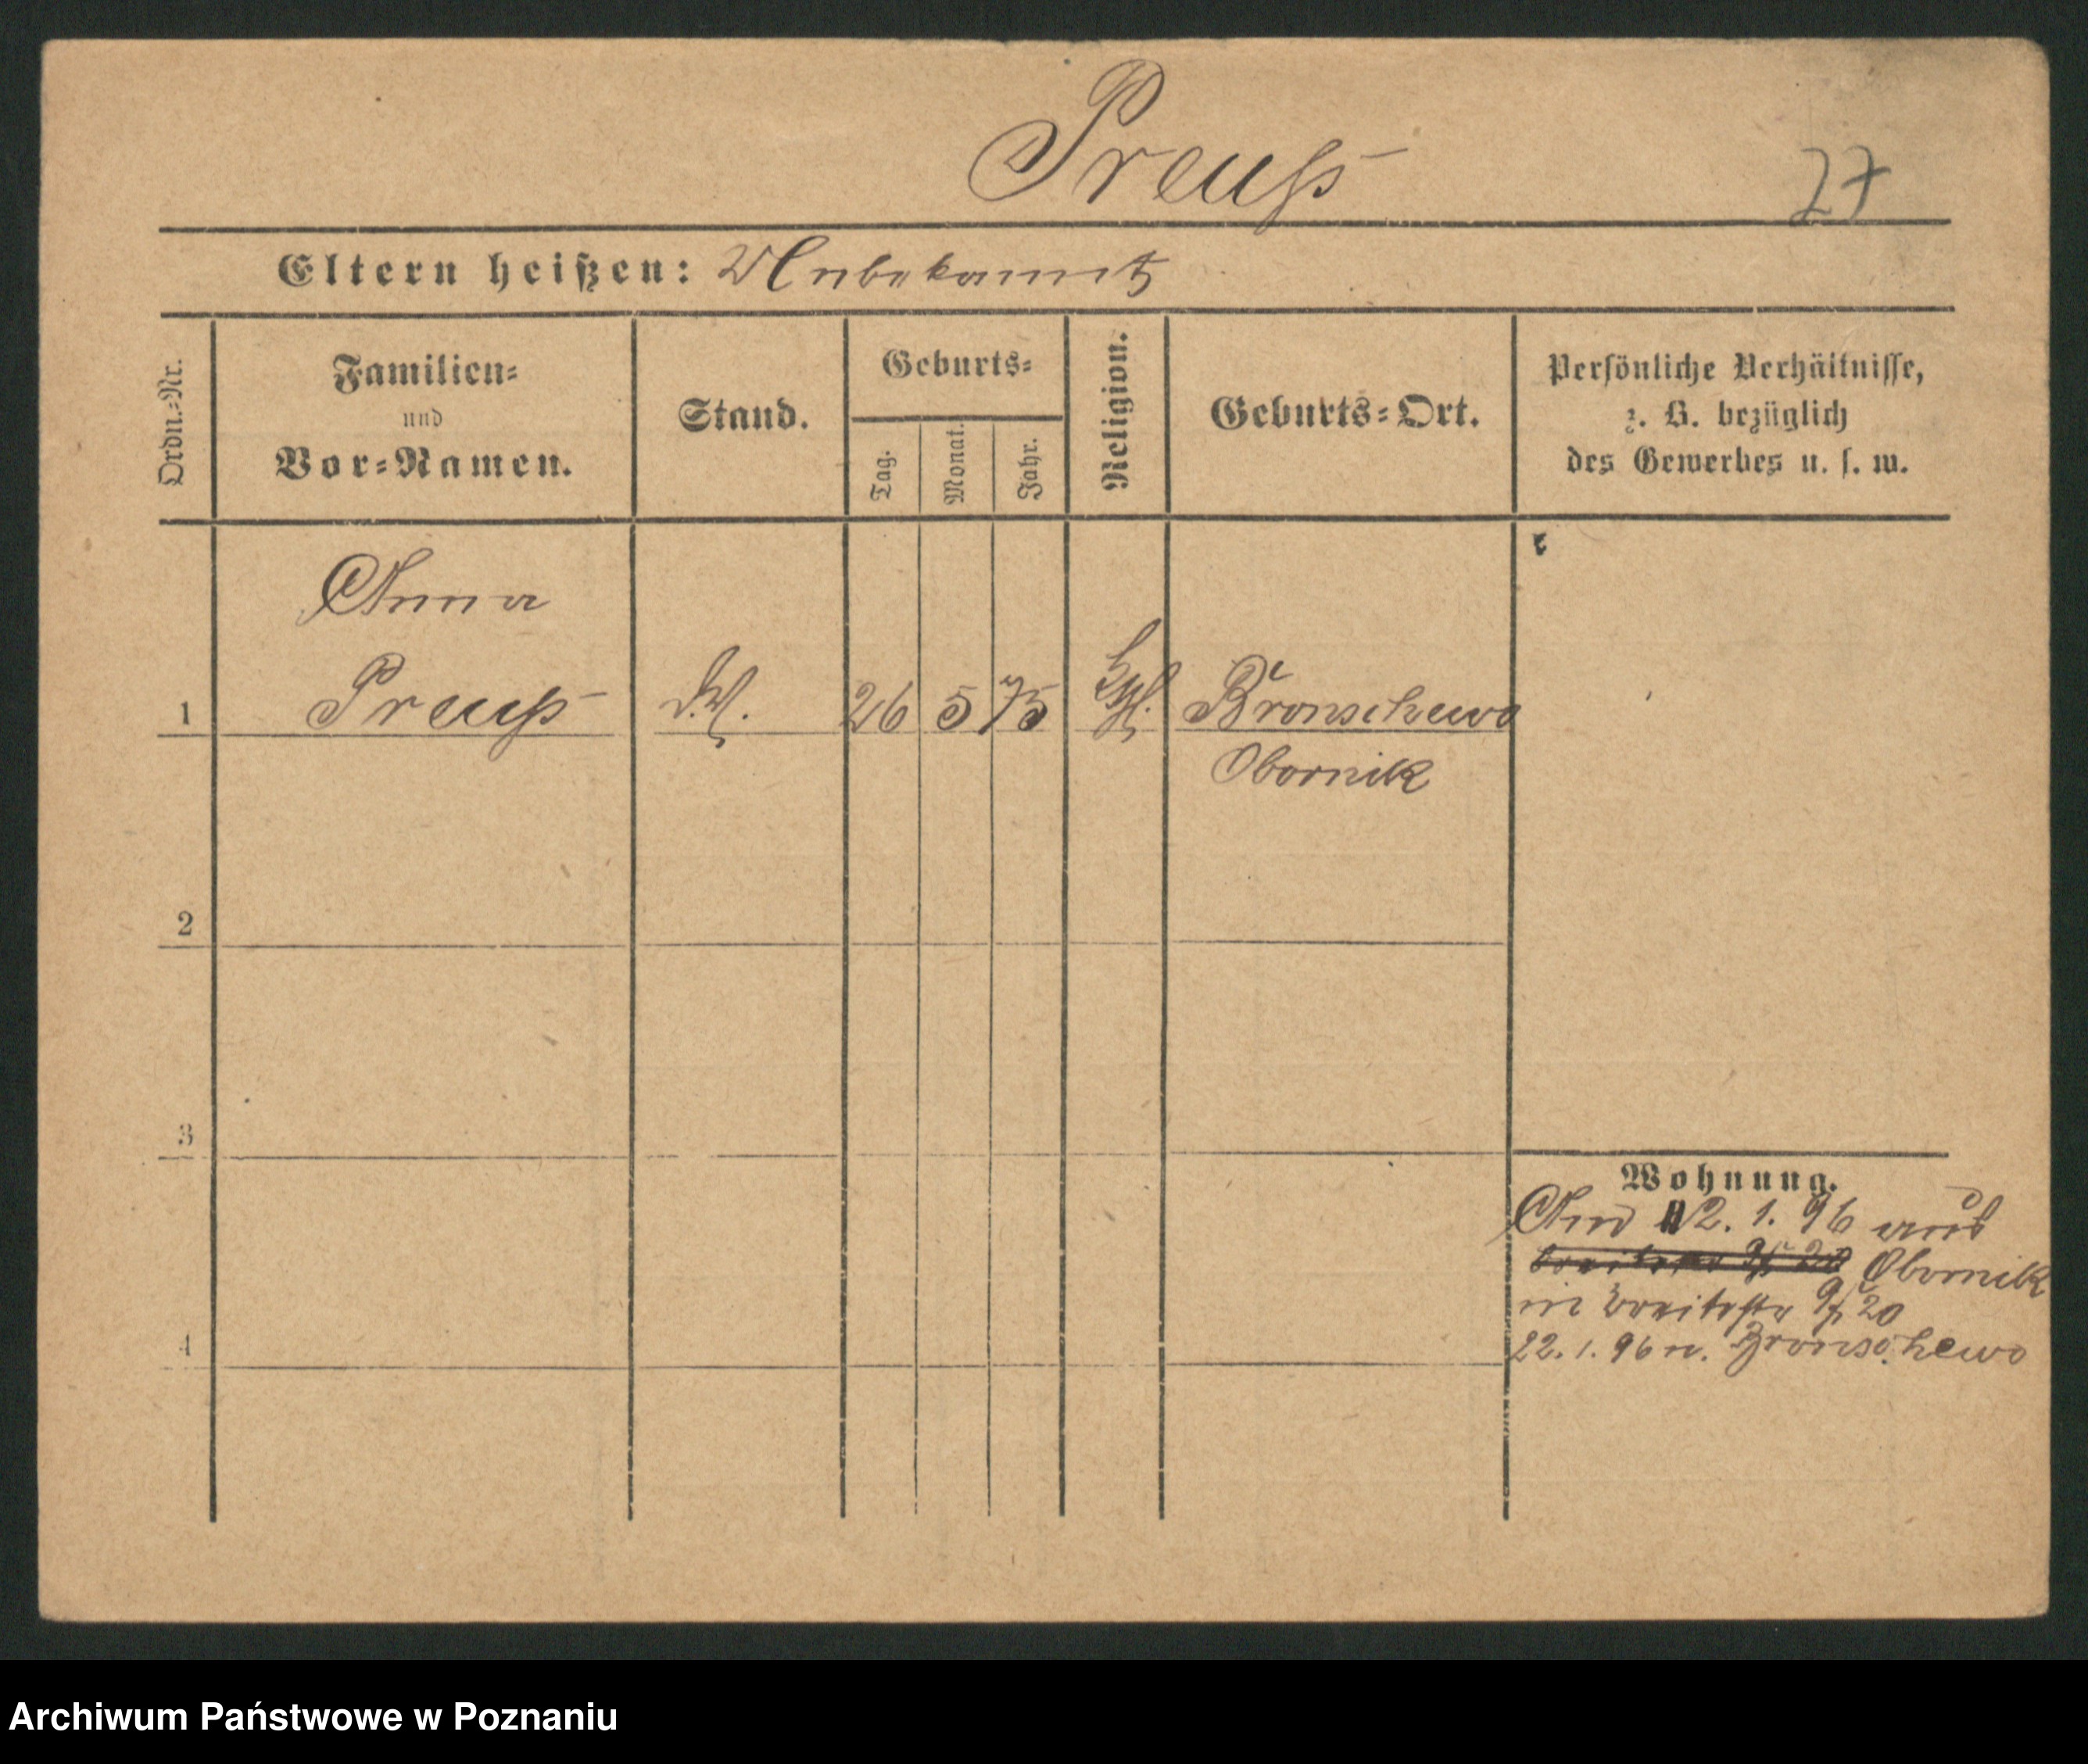 Preuß
27
Eltern heißen: Unbekannt
Ordn.-Nr.
Familien-
und
Vor-Namen.
Stand.
Geburts-
Tag.
Monat.
Jahr.
Religion.
Geburts-Ort.
Persönliche Verhältnisse,
z. B. bezüglich
des Gewerbes u. s. w.
Anna
1 Preuß 26 5 75 Bronschewo
Obornik
2
3
4
Wohnung.
12. 1. 96 aus
Obornik
in Breitestr 20
22. 1. 96 n. Bronschewo
Archiwum Państwowe w Poznaniu